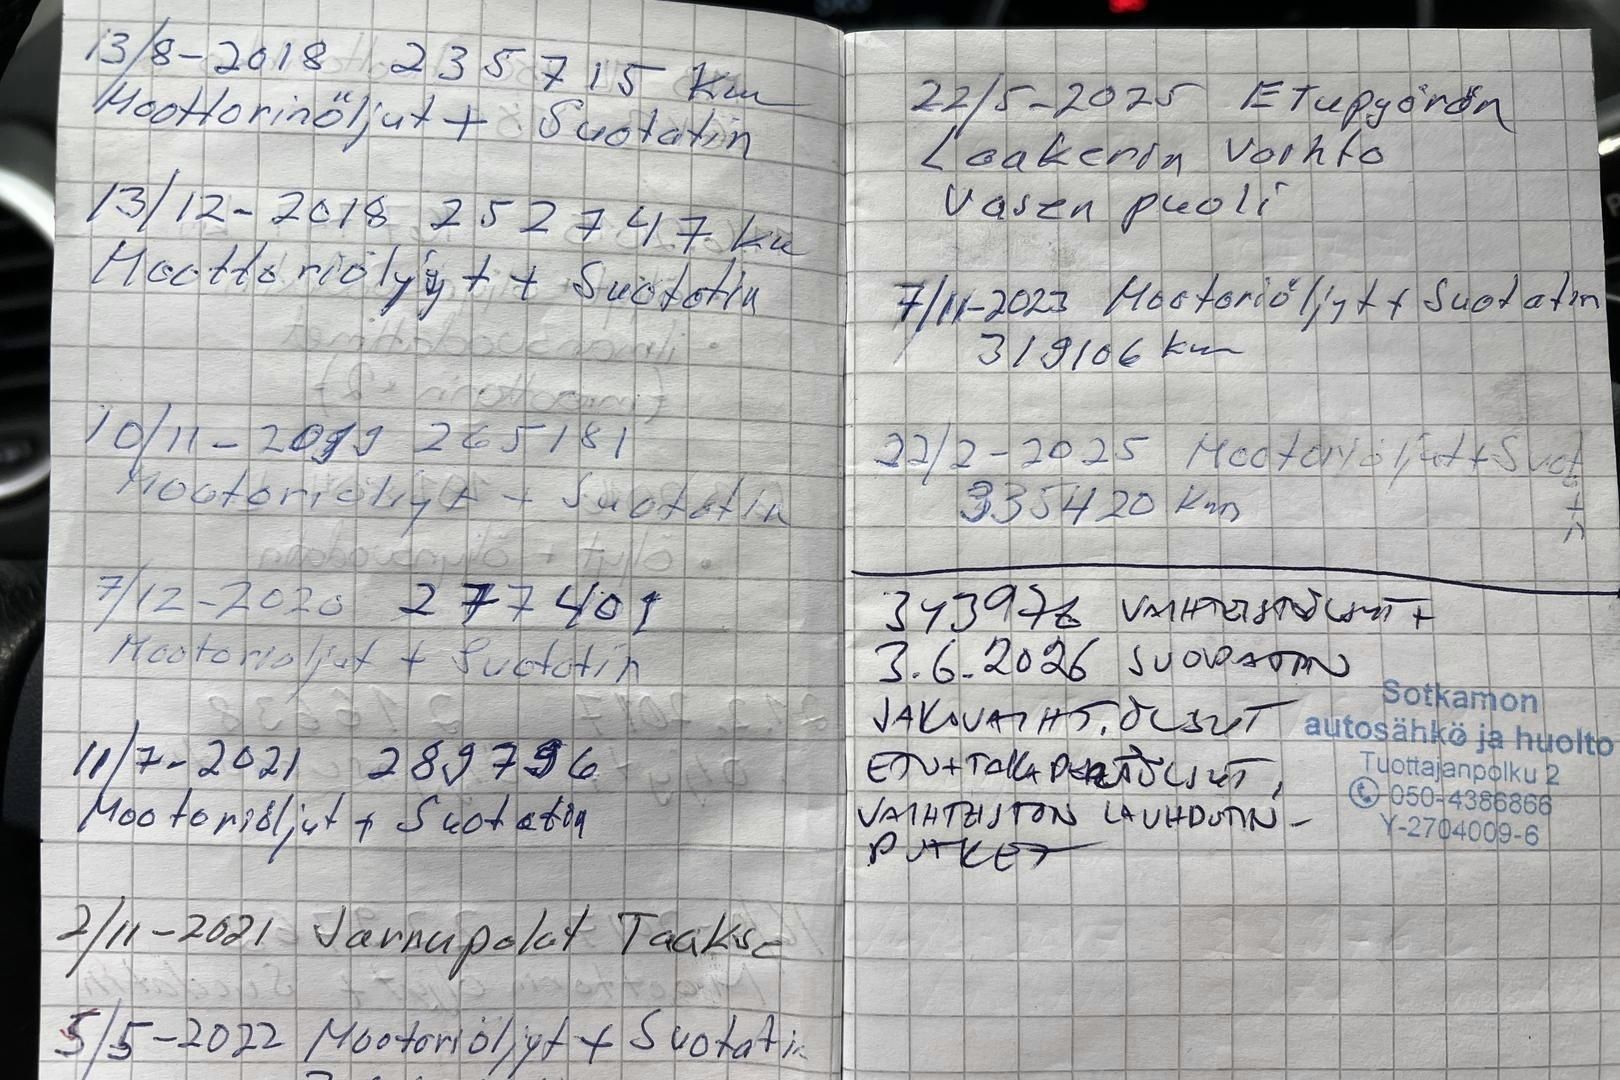 13/8-2018 235715 km
Moottorinöljut + Suotatin
13/12-2018 252747 km
Moottoriölyyt + Suotatin
10/11-2019 265181
Mootoriöljyt + Suotatin
7/12-2020 277401
Mootorioljut + Suotatin
11/7-2021 289796
Mootoriöljut + Suotatin
2/11-2021 Jarrupalat Taakse
5/5-2022 Mootoriöljyt + Suotatin
22/5-2025 Etupyörön
Laakerin Vaihto
Vasen puoli
7/11-2023 Mootoriöljyt + Suotatin
319106 km
22/2-2025 Mootoriöljut + Suotatin
335420 km
343976 VAIHTEISTÖLJYT +
3.6.2026 SUODATIN
JAKOVAIHT.ÖLJYT
ETU+TAKAPERÄÖLJYT,
VAIHTEISTON LAUHDUTIN-
PUTKET
Sotkamon
autosähkö ja huolto
Tuottajanpolku 2
050-4386866
Y-2704009-6